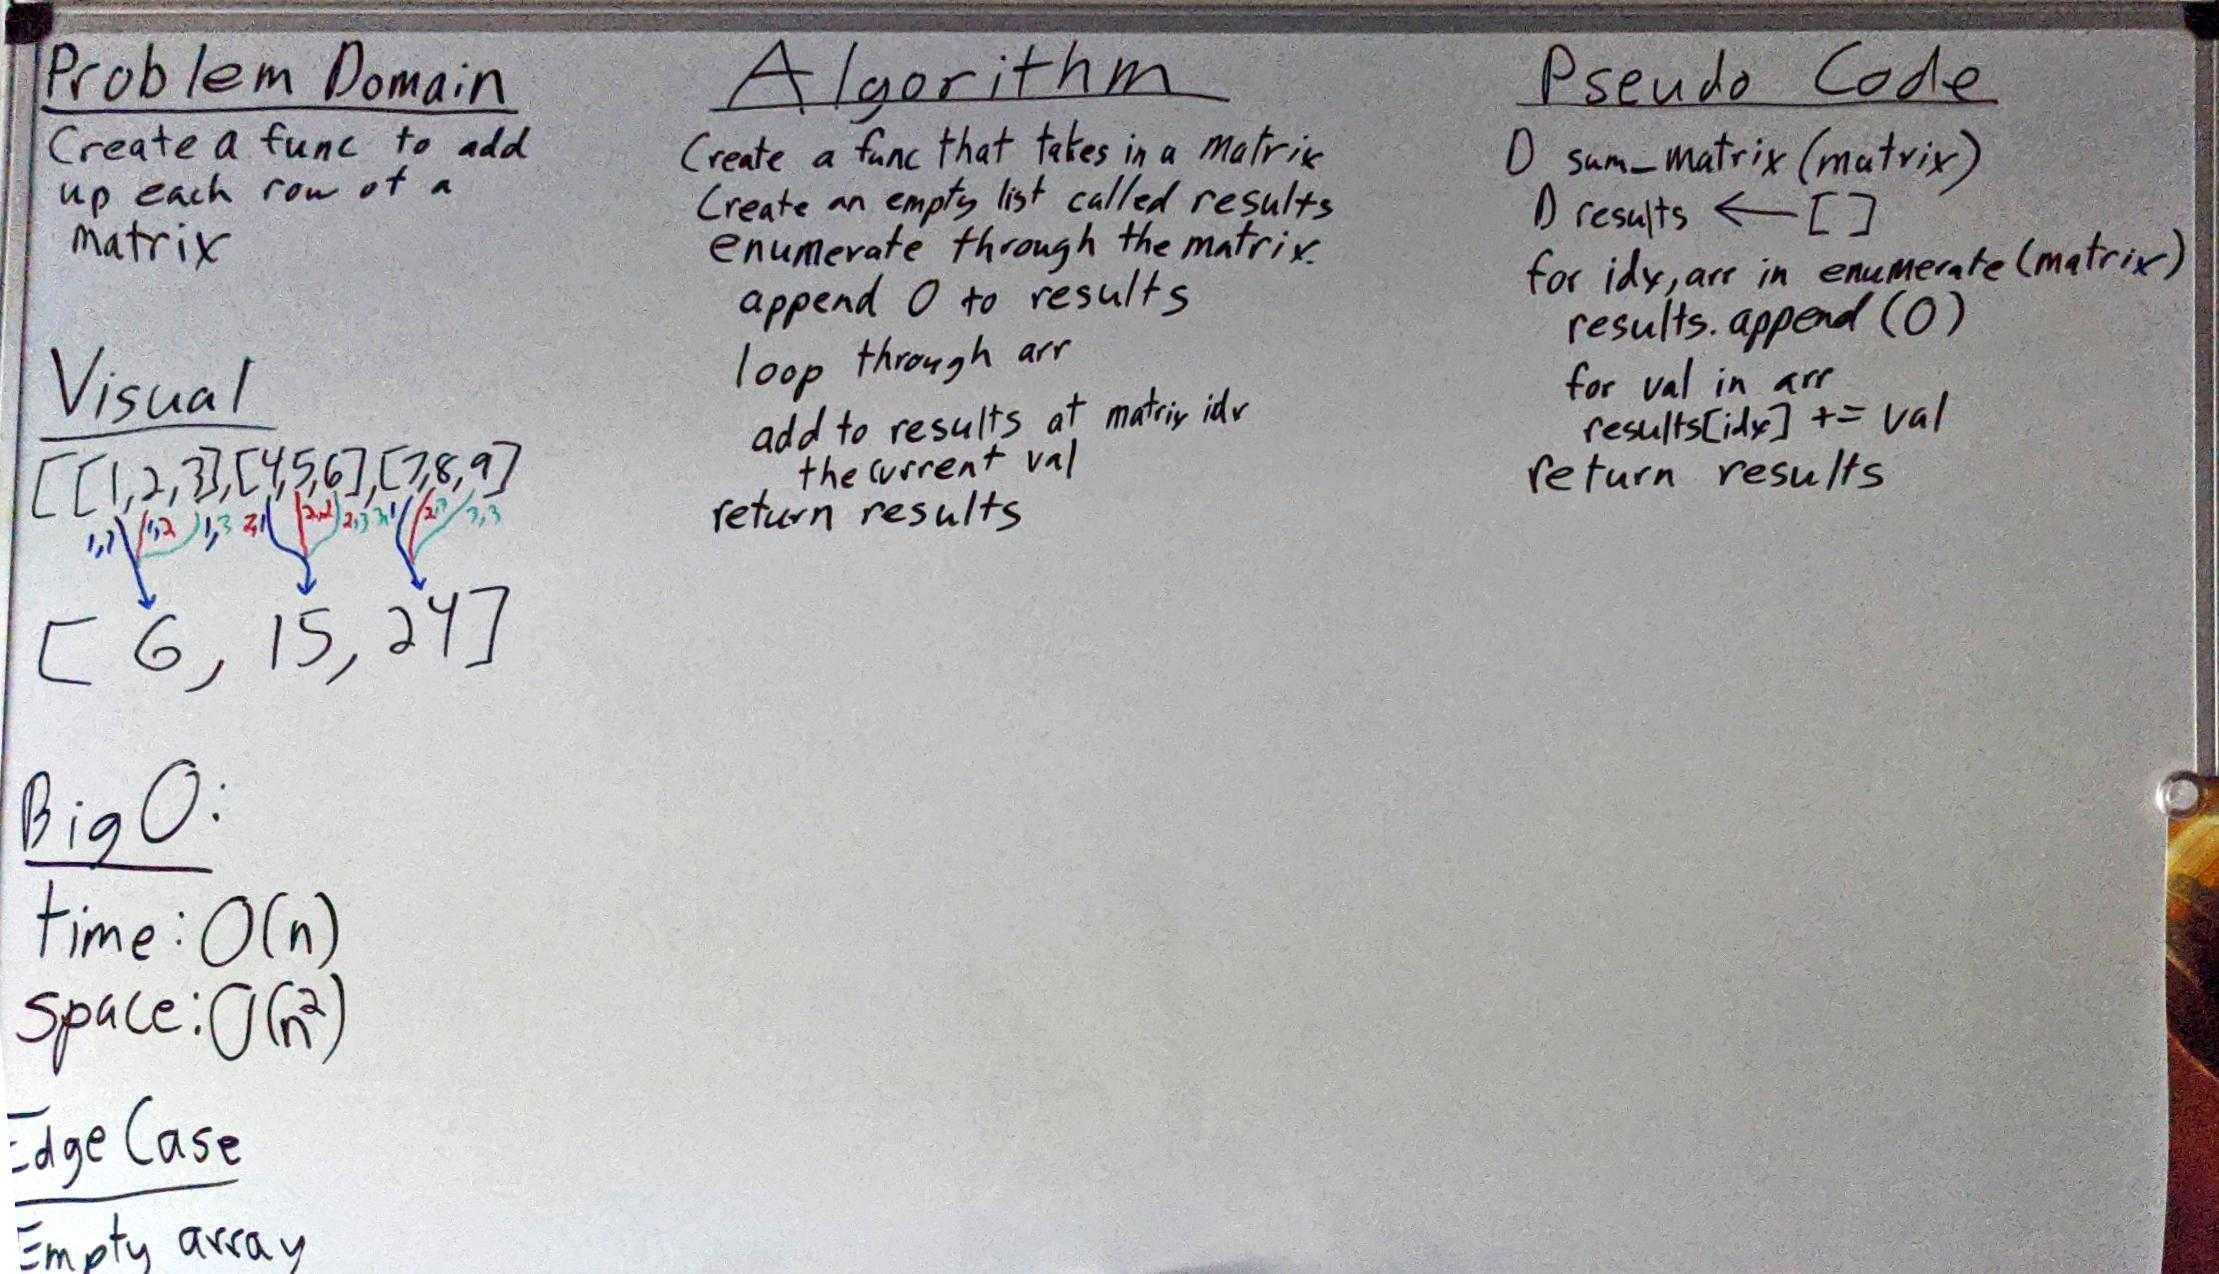 Problem Domain
Create a func to add
up each row of a
matrix
Visual
[[1,2,3],[4,5,6],[7,8,9]
1,1 1,2 1,3 2,1 2,2 2,3 3,1 3,3
[ 6, 15, 24]
Big O:
time: O(n)
space: O(n²)
Edge Case
Empty array
Algorithm
Create a func that takes in a matrix
Create an empty list called results
enumerate through the matrix.
append 0 to results
loop through arr
add to results at matrix idx
the current val
return results
Pseudo Code
D sum_matrix(matrix)
D results ← []
for idx, arr in enumerate(matrix)
results.append(0)
for val in arr
results[idx] += val
return results